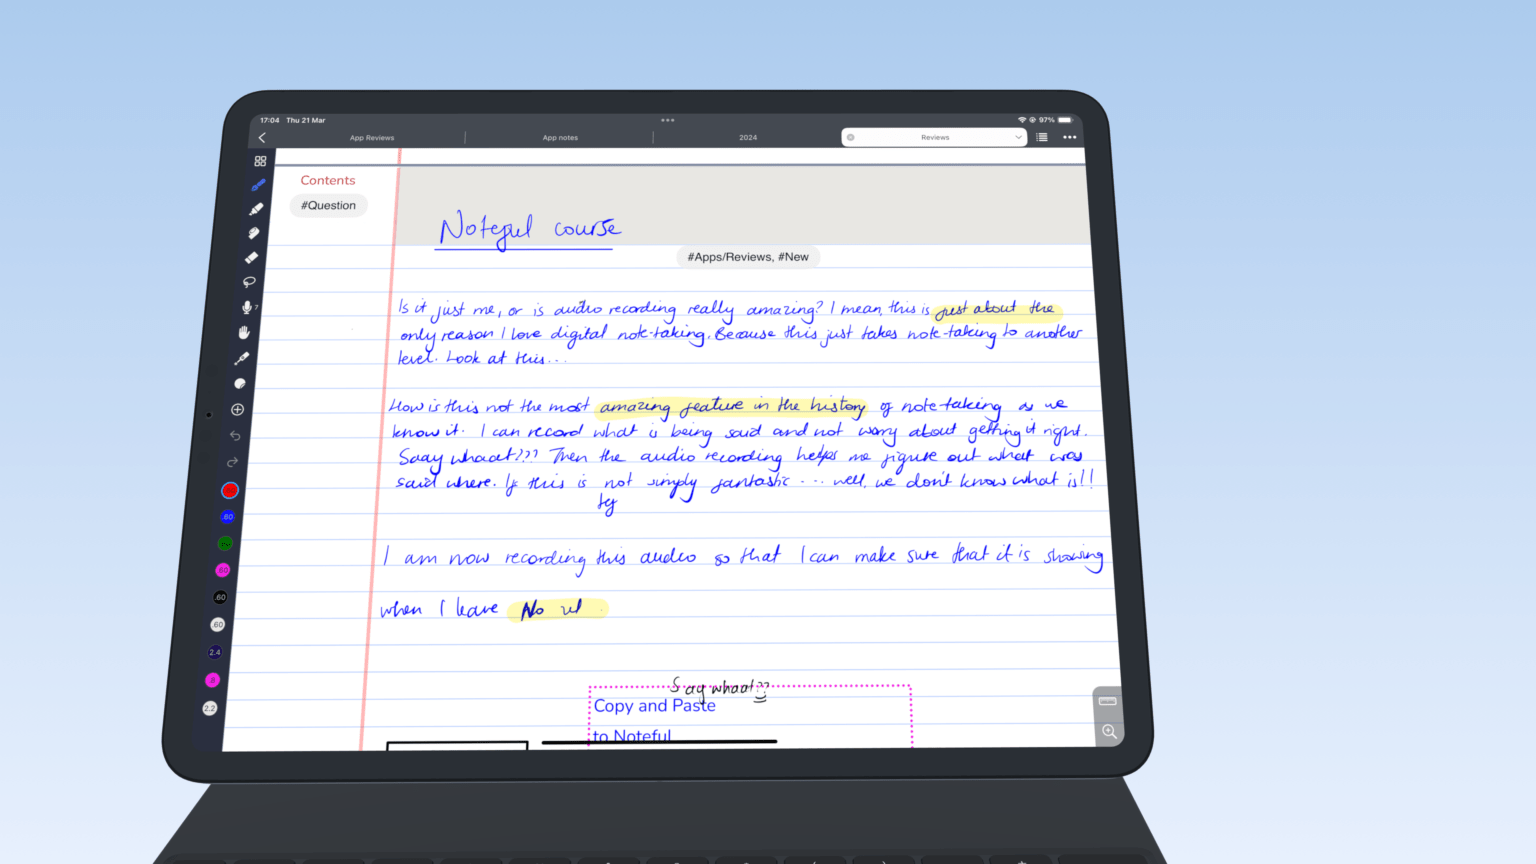 17:04 Thu 21 Mar
97%
App Reviews
App notes
2024
Reviews
Contents
#Question
Noteful course
#Apps/Reviews, #New
Is it just me, or is audio recording really amazing? I mean, this is just about the
only reason I love digital note-taking. Because this just takes note-taking to another
level. Look at this...
How is this not the most amazing feature in the history of note-taking as we
know it. I can record what is being said and not worry about getting it right.
Saay whaaat??? Then the audio recording helps me figure out what was
said where. If this is not simply fantastic ... well, we don't know what is!!
I am now recording this audio so that I can make sure that it is showing
when I leave No
Say whaat??
Copy and Paste
to Noteful
7
.60
.60
.60
2.4
2.2